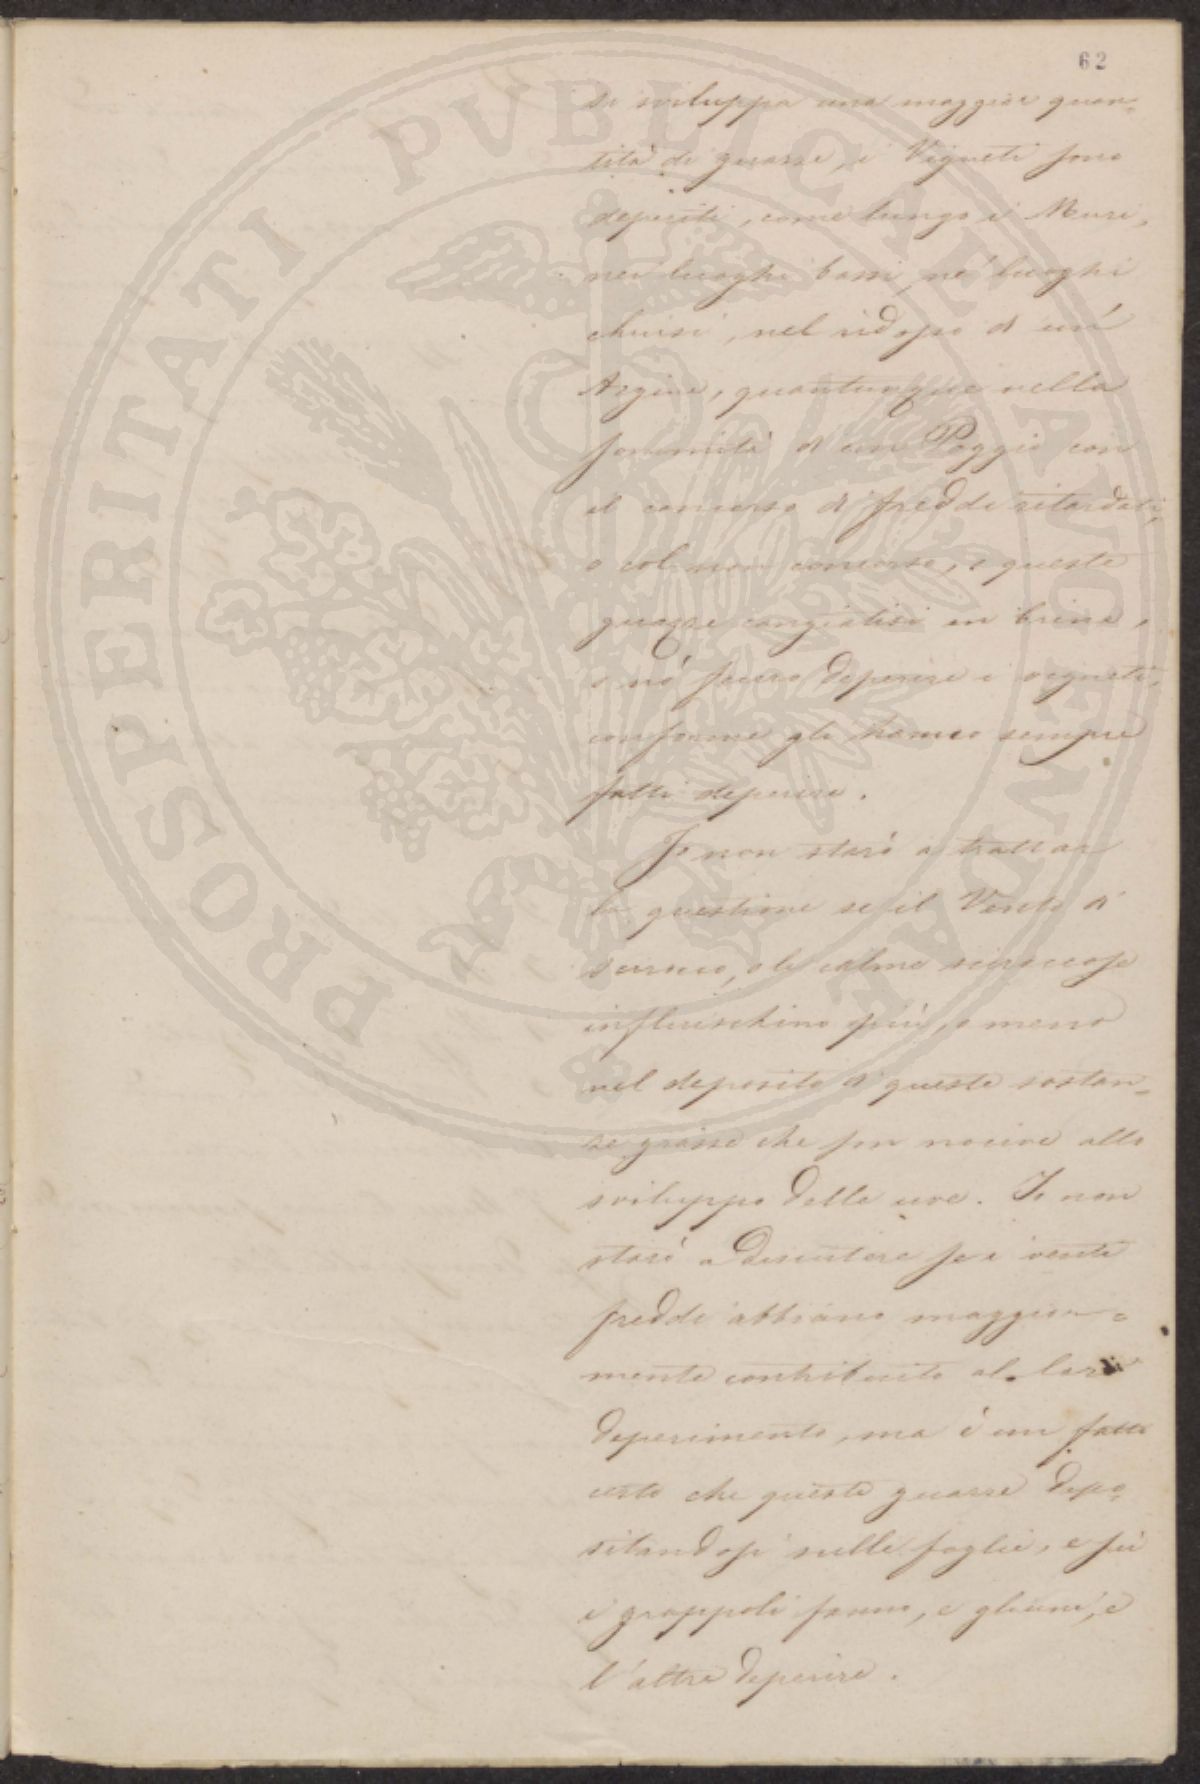 62
si sviluppa una maggior quan=
tità di guasse, i Vigneti sono
deperiti, come lungo i Muri,
nei luoghi bassi, ne' luoghi
chiusi, nel ridosso d' un'
Argine, quantunque nella
sommità d' un Poggio con
il concorso d' freddi ritardati,
o col non concorso, e queste
guazze cangiatisi in brine,
o nò fecero deperire i vigneti,
conforme gli hanno sempre
fatti deperire.
Io non starò a trattar
la questione se il Vento d'
scirocco, o le calme sciroccose
influischino più, o meno
nel deposito d' queste sostan=
ze grasse che son nocive allo
sviluppo delle uve. Io non
starò a discutere se i venti
freddi abbiano maggior=
mente contribuito al loro
deperimento, ma è un fatto
certo che queste guasse depo=
sitandosi nelle foglie, e su
i grappoli fanno, e gli uni, e
l'altre deperire.
PROSPERITATI PVBLICAE AVGENDAE